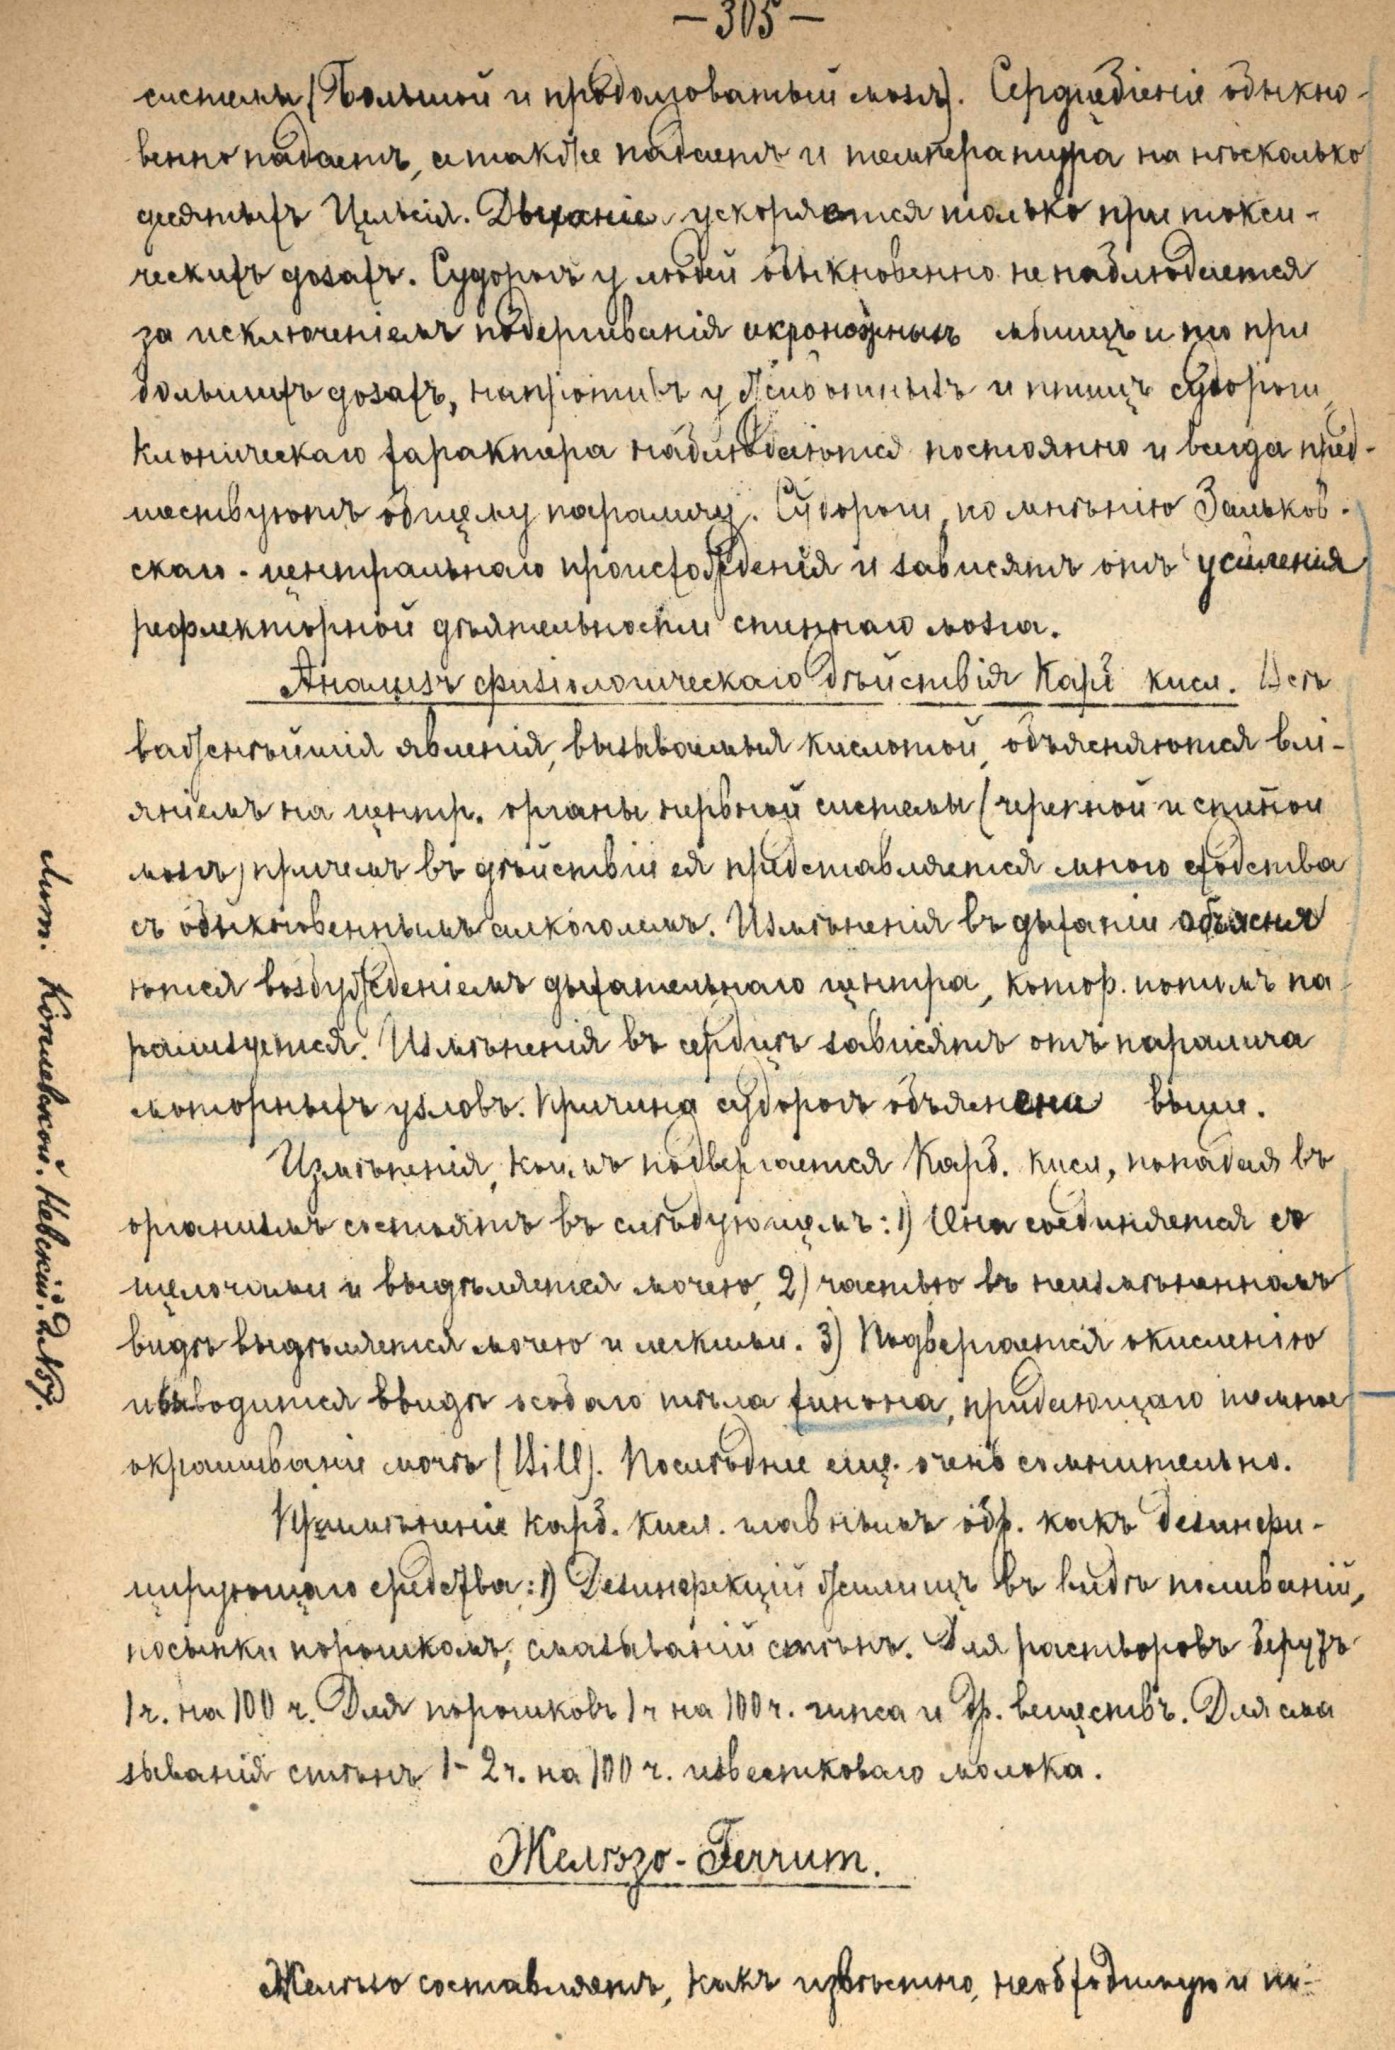 — 305 —
системы (Большой и продолговатый мозгъ). Сердцебіеніе обыкно-
венно падаетъ, а также падаетъ и температура на нѣсколько
десятыхъ Цельсія. Дыханіе ускоряется только при токси-
ческихъ дозахъ. Судорогъ у людей обыкновенно не наблюдается
за исключеніемъ подергиванія икроножныхъ мышцъ и то при
большихъ дозахъ, напротивъ у животныхъ и птицъ судороги
клоническаго характера наблюдаются постоянно и всегда пред-
шествуютъ общему параличу. Судороги, по мнѣнію Зальков-
скаго - центральнаго происхожденія и зависятъ отъ усиленія
рефлекторной дѣятельности спиннаго мозга.
Анализъ физіологическаго дѣйствія Карб кисл. Всѣ
важнѣйшія явленія, вызываемыя кислотой, объясняются влі-
яніемъ на центр. органы нервной системы (черепной и спиной
мозгъ) причемъ въ дѣйствіи ея представляется много сходства
съ обыкновеннымъ алкоголемъ. Измѣненія въ дыханіи объясня
ются возбужденіемъ дыхательнаго центра, котор. потомъ па-
рализуется. Измѣненія въ сердцѣ зависятъ отъ паралича
моторныхъ узловъ. Причина судорогъ объяснена выше.
Измѣненія, коимъ подвергается Карб. кисл, попадая въ
организмъ состоятъ въ слѣдующемъ: 1) Она соединяется со
щелочами и выдѣляется мочею, 2) частью въ неизмѣненномъ
видѣ выдѣляется мочею и легкими. 3) Подвергается окисленію
и выводится ввидѣ особаго тѣла хинона, придающаго темное
окрашиваніе мочѣ (Hill). Послѣднее еще очень сомнительно.
Примѣненіе карб. кисл. главнымъ обр. какъ дезинфи-
цирующаго средства: 1) Дезинфекціи жилищъ въ видѣ поливаній,
посыпки порошкомъ, смазываній стѣнъ. Для растворовъ берутъ
1 ч. на 100 ч. Для порошковъ 1 ч на 100 ч. гипса и др. веществъ. Для сма
зыванія стѣнъ 1-2 ч. на 100 ч. известковаго молока.
Желѣзо - Ferrum.
Желѣзо составляетъ, какъ извѣстно, необходимую и по-
Лит. Комлевкой. Невскій. д №7.